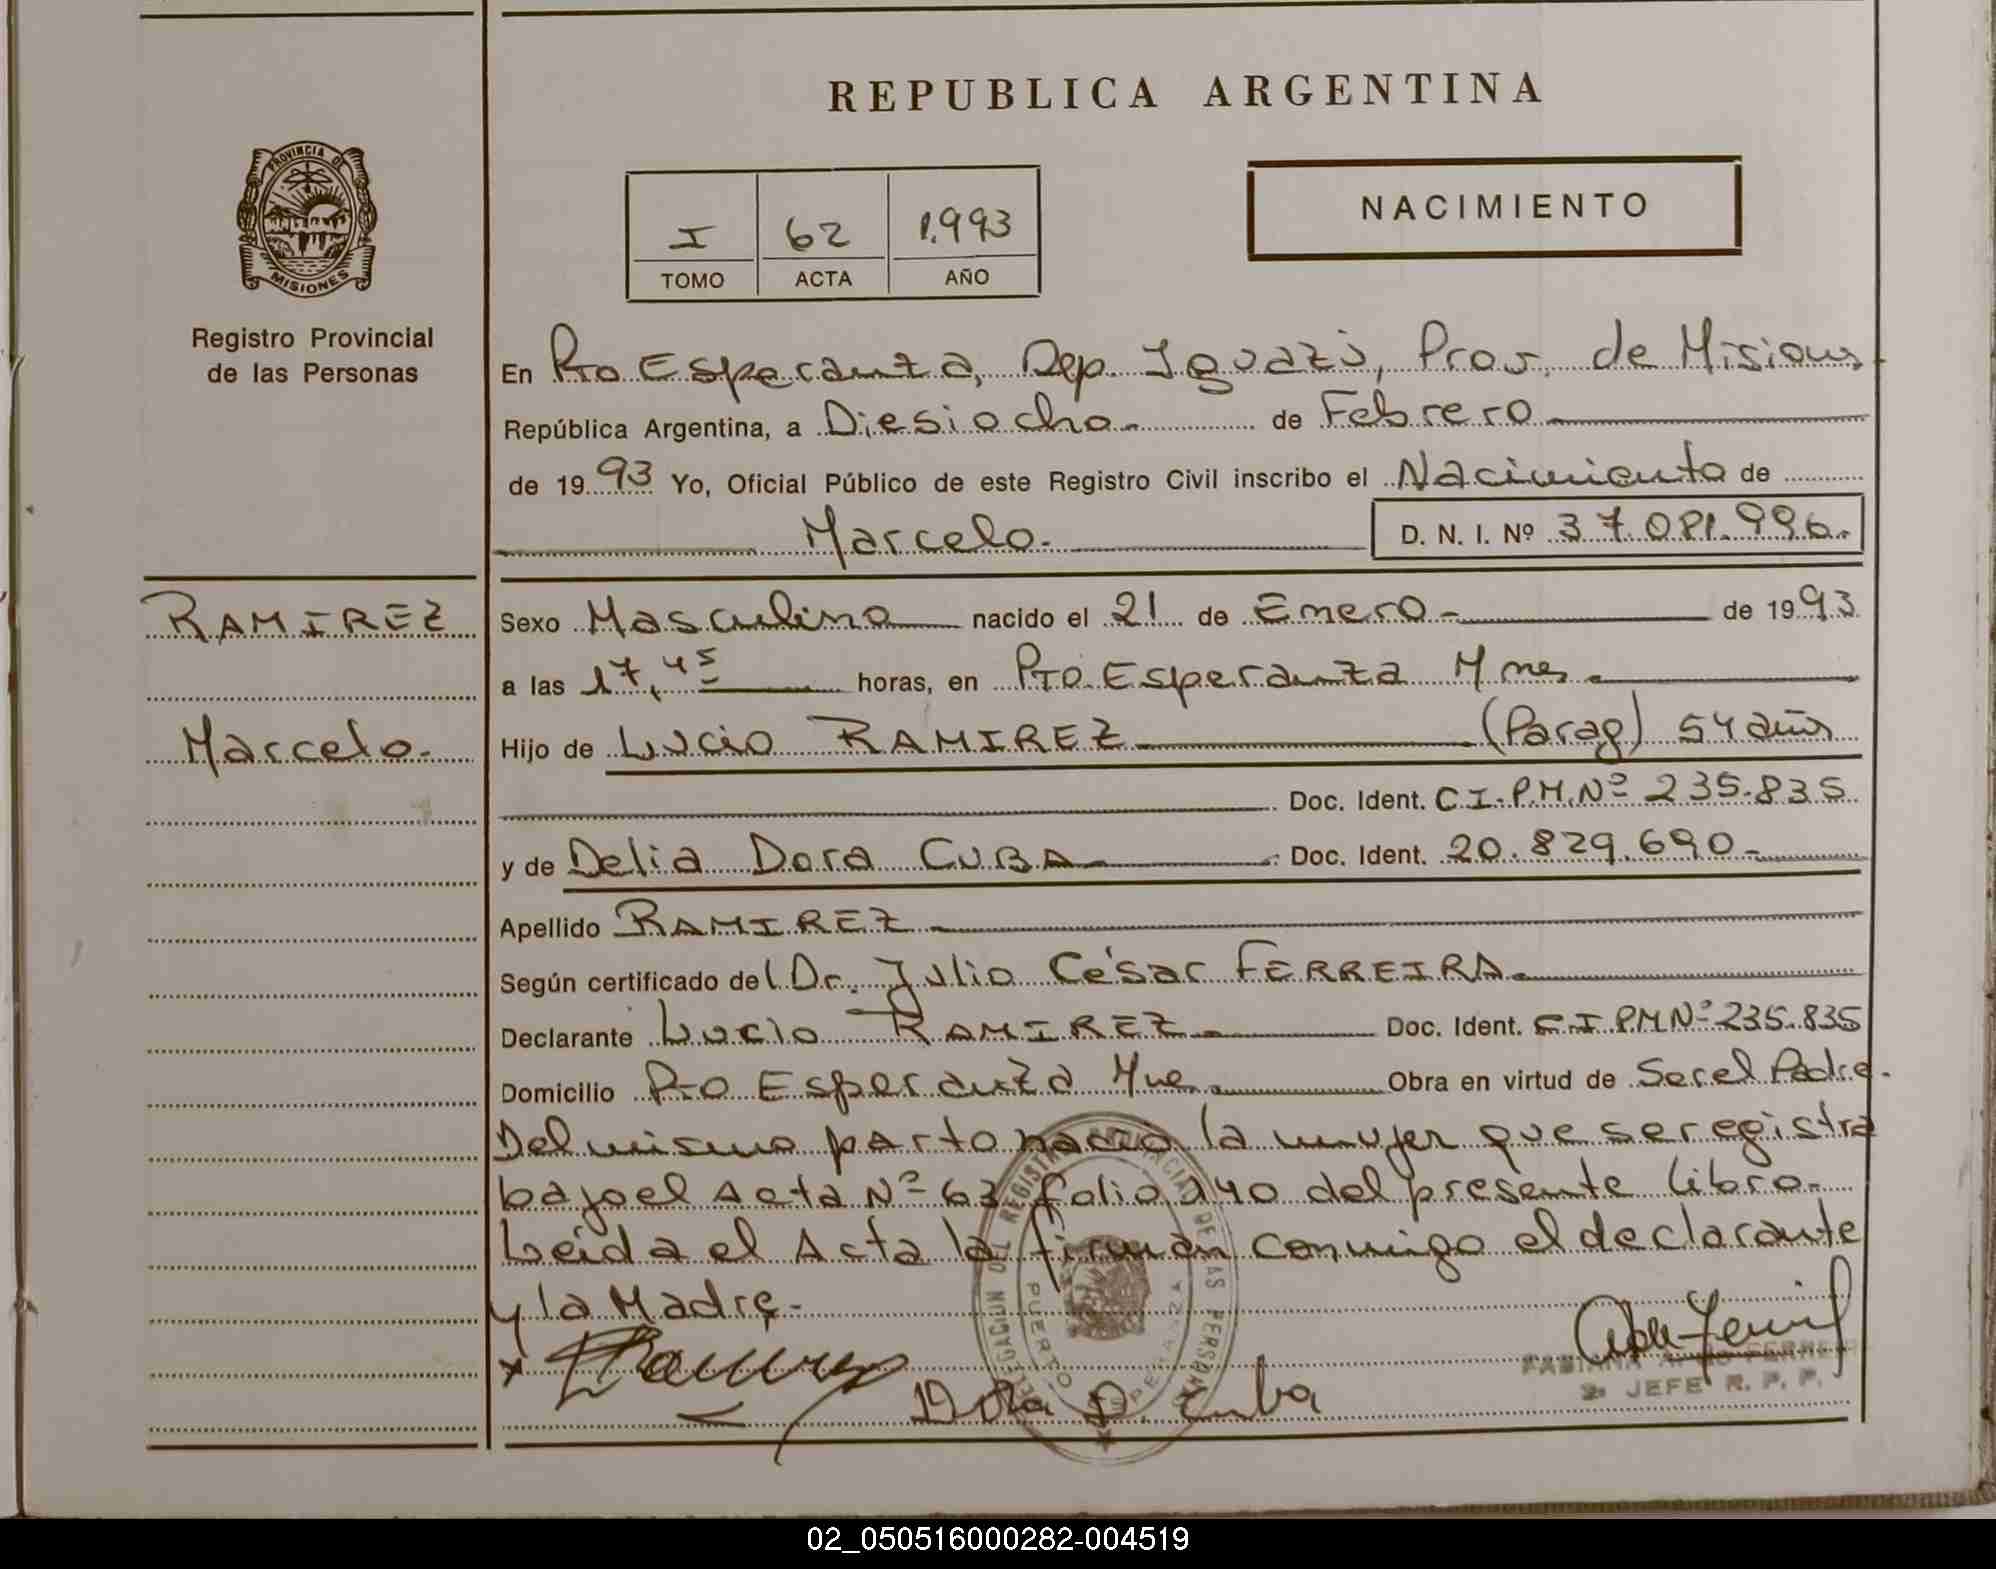 REPUBLICA ARGENTINA
PROVINCIA DE
MISIONES
Registro Provincial
de las Personas
I 62 1.993
TOMO ACTA AÑO
NACIMIENTO
En Pto Esperanza, Dep. Iguazú, Prov. de Misiones
República Argentina, a Diesiocho. de Febrero
de 19 93 Yo, Oficial Público de este Registro Civil inscribo el Nacimiento de
Marcelo. D. N. I. Nº 37.081.996.
RAMIREZ
Marcelo.
Sexo Masculino nacido el 21 de Enero de 19 93
a las 17,45 horas, en Pto. Esperanza Mnes.
Hijo de Lucio RAMIREZ (Parag) 54 años
Doc. Ident. C.I.P.M.Nº 235.835
y de Delia Dora CUBA Doc. Ident. 20.829.690
Apellido RAMIREZ
Según certificado del Dr. Julio César FERREIRA.
Declarante Lucio RAMIREZ Doc. Ident. C.I.P.M.Nº 235.835
Domicilio Pto Esperanza Mne. Obra en virtud de Ser el Padre.
Del mismo parto nacio la mujer que se registra
bajo el Acta Nº 63 folio 140 del presente libro.
Leída el Acta la firman conmigo el declarante
y la Madre.
Dora D. Cuba
2º JEFE R. P. P.
DELEGACION DEL REGISTRO PROVINCIAL DE LAS PERSONAS
PUERTO ESPERANZA
02_050516000282-004519